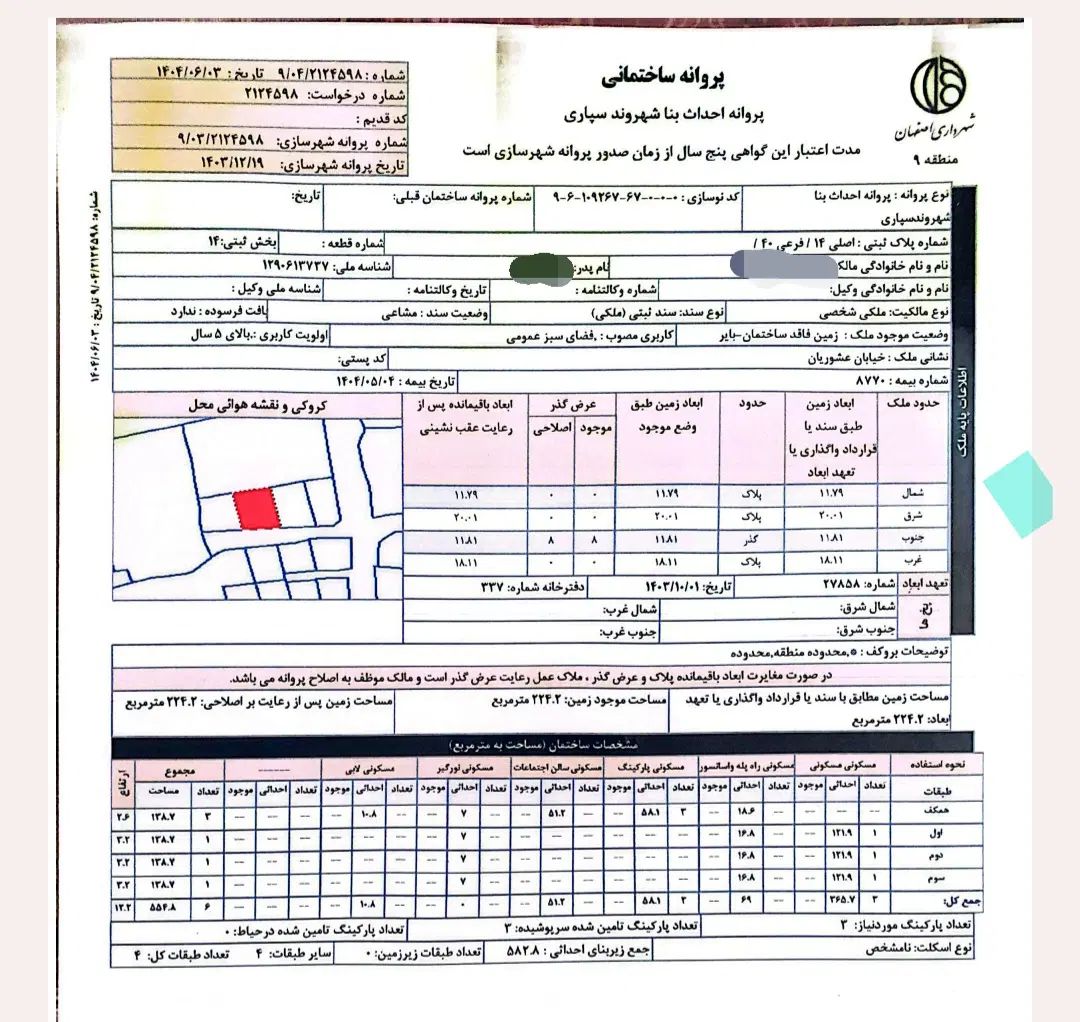 شهرداری اصفهان
منطقه ۹
پروانه ساختمانی
پروانه احداث بنا شهروند سپاری
مدت اعتبار این گواهی پنج سال از زمان صدور پروانه شهرسازی است
شماره : ۹/۰۴/۲۱۲۴۵۹۸ تاریخ : ۱۴۰۴/۰۶/۰۳
شماره درخواست: ۲۱۲۴۵۹۸
کد قدیم :
شماره پروانه شهرسازی: ۹/۰۳/۲۱۲۴۵۹۸
تاریخ پروانه شهرسازی: ۱۴۰۳/۱۲/۱۹
شماره: ۹/۰۴/۲۱۲۴۵۹۸ تاریخ : ۱۴۰۴/۰۶/۰۳
نوع پروانه : پروانه احداث بنا شهروندسپاری کد نوسازی : ۹-۶-۱۰۹۲۶۷-۶۷-۰-۰-۰ شماره پروانه ساختمان قبلی: تاریخ:
شماره پلاک ثبتی : اصلی ۱۴ / فرعی ۴۰ / شماره قطعه : بخش ثبتی: ۱۴
نام و نام خانوادگی مالک نام پدر: شناسه ملی: ۱۲۹۰۶۱۳۷۳۷
نام و نام خانوادگی وکیل: شماره وکالتنامه : تاریخ وکالتنامه : شناسه ملی وکیل :
نوع مالکیت: ملکی شخصی نوع سند: سند ثبتی (ملکی) وضعیت سند : مشاعی بافت فرسوده : ندارد
وضعیت موجود ملک : زمین فاقد ساختمان-بایر کاربری مصوب : ,فضای سبز عمومی اولویت کاربری :,بالای ۵ سال
نشانی ملک : خیابان عشوریان کد پستی:
شماره بیمه : ۸۷۷۰ تاریخ بیمه : ۱۴۰۴/۰۵/۰۴
اطلاعات پایه ملک
حدود ملک ابعاد زمین طبق سند یا قرارداد واگذاری یا تعهد ابعاد حدود ابعاد زمین طبق وضع موجود عرض گذر موجود اصلاحی ابعاد باقیمانده پس از رعایت عقب نشینی
کروکی و نقشه هوائی محل
شمال ۱۱.۷۹ پلاک ۱۱.۷۹ ۰ ۰ ۱۱.۷۹
شرق ۲۰.۰۱ پلاک ۲۰.۰۱ ۰ ۰ ۲۰.۰۱
جنوب ۱۱.۸۱ گذر ۱۱.۸۱ ۸ ۸ ۱۱.۸۱
غرب ۱۸.۱۱ پلاک ۱۸.۱۱ ۰ ۰ ۱۸.۱۱
تعهد ابعاد شماره: ۲۷۸۵۸ تاریخ: ۱۴۰۳/۱۰/۰۱ دفترخانه شماره: ۳۳۷
پخ ها شمال شرق: شمال غرب:
جنوب شرق: جنوب غرب:
توضیحات بروکف : *,محدوده منطقه,محدوده
در صورت مغایرت ابعاد باقیمانده پلاک و عرض گذر ، ملاک عمل رعایت عرض گذر است و مالک موظف به اصلاح پروانه می باشد.
مساحت زمین مطابق با سند یا قرارداد واگذاری یا تعهد ابعاد: ۲۲۴.۲ مترمربع مساحت موجود زمین: ۲۲۴.۲ مترمربع مساحت زمین پس از رعایت بر اصلاحی: ۲۲۴.۲ مترمربع
مشخصات ساختمان (مساحت به مترمربع)
نحوه استفاده مسکونی مسکونی مسکونی راه پله واسانسور مسکونی پارکینگ مسکونی سالن اجتماعات مسکونی نورگیر مسکونی لابی ------ مجموع ارتفاع
طبقات تعداد احداثی موجود تعداد احداثی موجود تعداد احداثی موجود تعداد احداثی موجود تعداد احداثی موجود تعداد احداثی موجود تعداد احداثی موجود تعداد مساحت
همکف --- --- --- --- ۱۸.۶ --- ۳ ۵۸.۱ --- --- ۵۱.۲ --- --- ۷ --- --- ۱۰.۸ --- --- --- --- ۳ ۱۳۸.۷ ۲.۶
اول ۱ ۱۲۱.۹ --- --- ۱۶.۸ --- --- --- --- --- --- --- --- ۷ --- --- --- --- --- --- --- ۱ ۱۳۸.۷ ۳.۲
دوم ۱ ۱۲۱.۹ --- --- ۱۶.۸ --- --- --- --- --- --- --- --- ۷ --- --- --- --- --- --- --- ۱ ۱۳۸.۷ ۳.۲
سوم ۱ ۱۲۱.۹ --- --- ۱۶.۸ --- --- --- --- --- --- --- --- ۷ --- --- --- --- --- --- --- ۱ ۱۳۸.۷ ۳.۲
جمع کل: ۳ ۳۶۵.۷ --- --- ۶۹ --- ۳ ۵۸.۱ --- --- ۵۱.۲ --- --- ۰ --- --- ۱۰.۸ --- --- --- --- ۶ ۵۵۴.۸ ۱۲.۲
تعداد پارکینگ موردنیاز: ۳ تعداد پارکینگ تامین شده سرپوشیده: ۳ تعداد پارکینگ تامین شده درحیاط: ۰
نوع اسکلت: نامشخص جمع زیربنای احداثی : ۵۸۲.۸ تعداد طبقات زیرزمین: ۰ سایر طبقات: ۴ تعداد طبقات کل: ۴